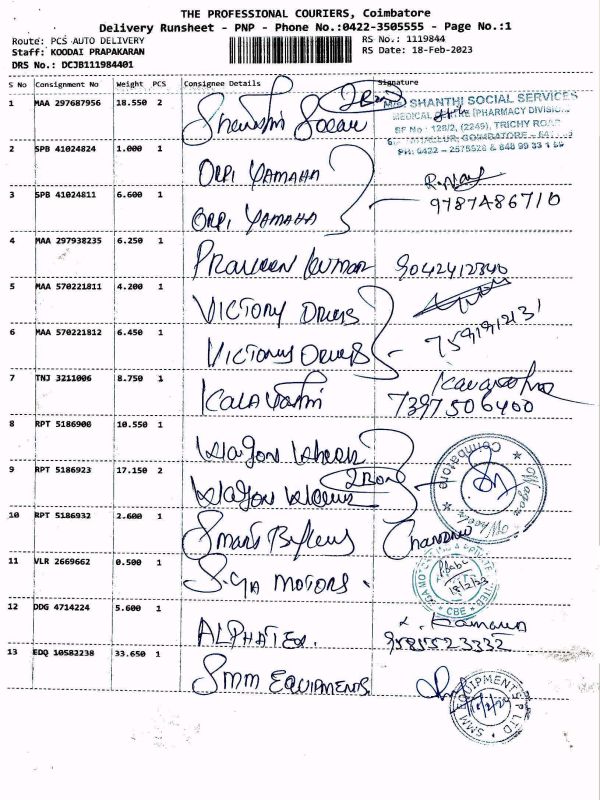 THE PROFESSIONAL COURIERS, Coimbatore
Delivery Runsheet - PNP - Phone No.:0422-3505555 - Page No.:1
Route: PCS AUTO DELIVERY
RS No.: 1119844
Staff: KOODAI PRAPAKARAN
RS Date: 18-Feb-2023
DRS No.: DCJB111984401
S No Consignment No Weight PCS Consignee Details Signature
1 MAA 297687956 18.550 2
2 Box
M/s SHANTHI SOCIAL SERVICES
MEDICAL CENTRE (PHARMACY DIVISION)
SF No : 128/2, (2249), TRICHY ROAD
2 SPB 41024824 1.000 1
YAMAHA
3 SPB 41024811 6.600 1
YAMAHA
9787486710
4 MAA 297938235 6.250 1
PRAVEEN KUMAR 9042412340
5 MAA 570221811 4.200 1
VICTORY DRUGS
6 MAA 570221812 6.450 1
DRUGS
7 TNJ 3211006 8.750 1
7397506400
8 RPT 5186908 10.550 1
Wagon Wheels
9 RPT 5186923 17.150 2
Wagon Wheels
2 Box
10 RPT 5186932 2.600 1
11 VLR 2669662 0.500 1
S.GA MOTORS.
CBE
12 DDG 4714224 5.600 1
ALPHATEX.
13 EDQ 10582238 33.650 1
SMM EQUIPMENTS
SMM EQUIPMENTS P LTD